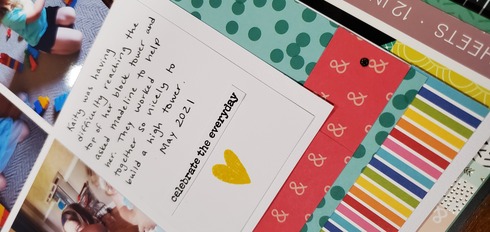 Kaity was having
difficulty reaching the
top of her block tower and
asked madeline to help
her. They worked
together so nicely to
build a high tower.
May 2021
celebrate the everyday
&
&
&
&
&
&
SHEETS · 12 IN